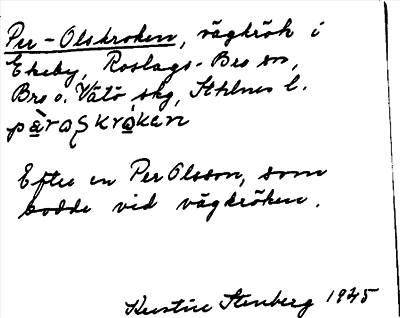 Per-Olskroken, vägkrök i
Ekeby, Roslags-Bro sn,
Bro o. Vätö skg, Sthlms l.
pàraskrókan
Efter en Per Olsson, som
bodde vid vägkröken.
Kerstin Stenberg 1945